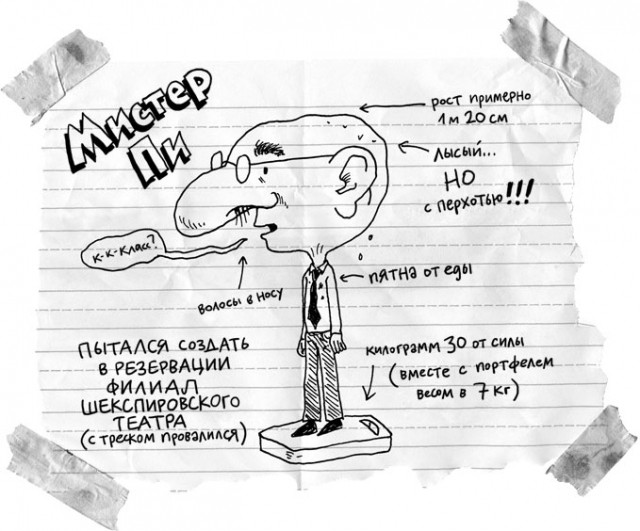 Мистер
Пи
рост примерно
1 м 20 см
лысый...
НО
с перхотью!!!
к-к-класс?
волосы в носу
пятна от еды
пытался создать
в резервации
филиал
шекспировского
театра
(с треском провалился)
килограмм 30 от силы
(вместе с портфелем
весом в 7 кг)